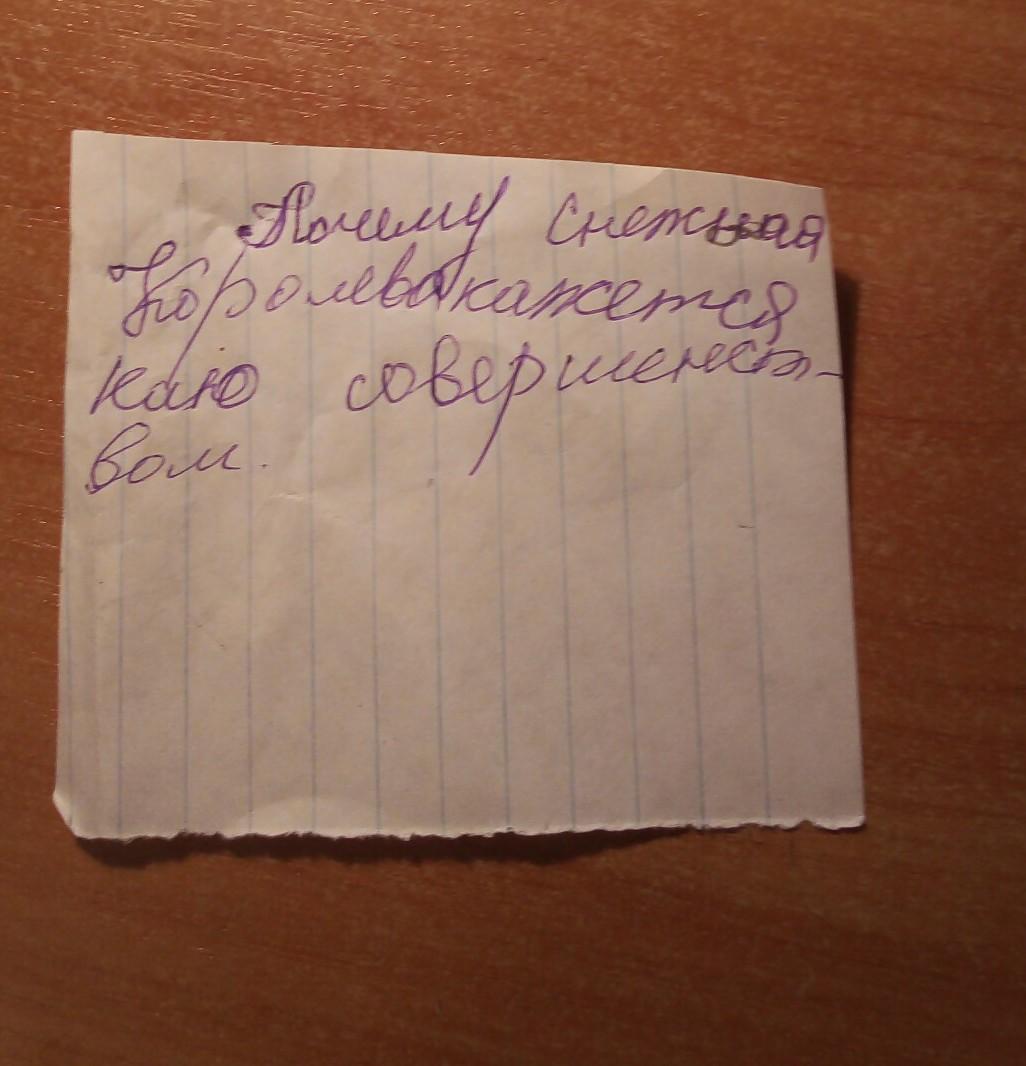 Почему Снежная
Королева кажется
каю совершенст-
вом.